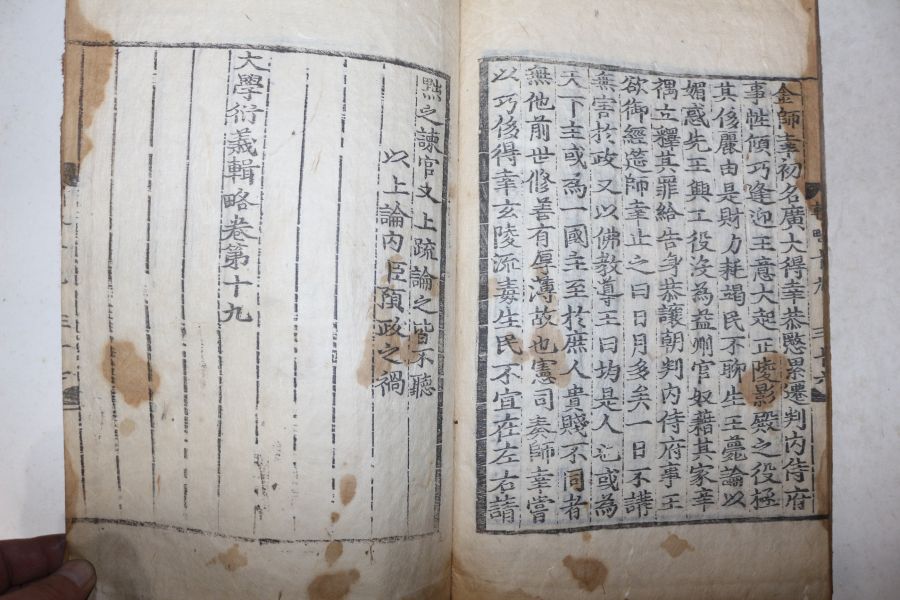 金師幸初名廣大得幸恭愍累遷判內侍府
事性傾巧逢迎王意大起正陵影殿之役極
其侈麗由是財力耗竭民不聊生王薨論以
媚惑先王興工役沒為益州官奴籍其家辛
禑立釋其罪給告身恭讓朝判內侍府事王
欲御經筵師幸止之曰日月多矣一日不講
無害於政又以佛教導王曰均是人也或為
天下主或為一國主至於庶人貴賤不同者
無他前世修善有厚薄故也憲司奏師幸嘗
以巧侈得幸玄陵流毒生民不宜在左右請
黜之諫官又上疏論之皆不聽
以上論內臣預政之禍
大學衍義輯略卷第十九